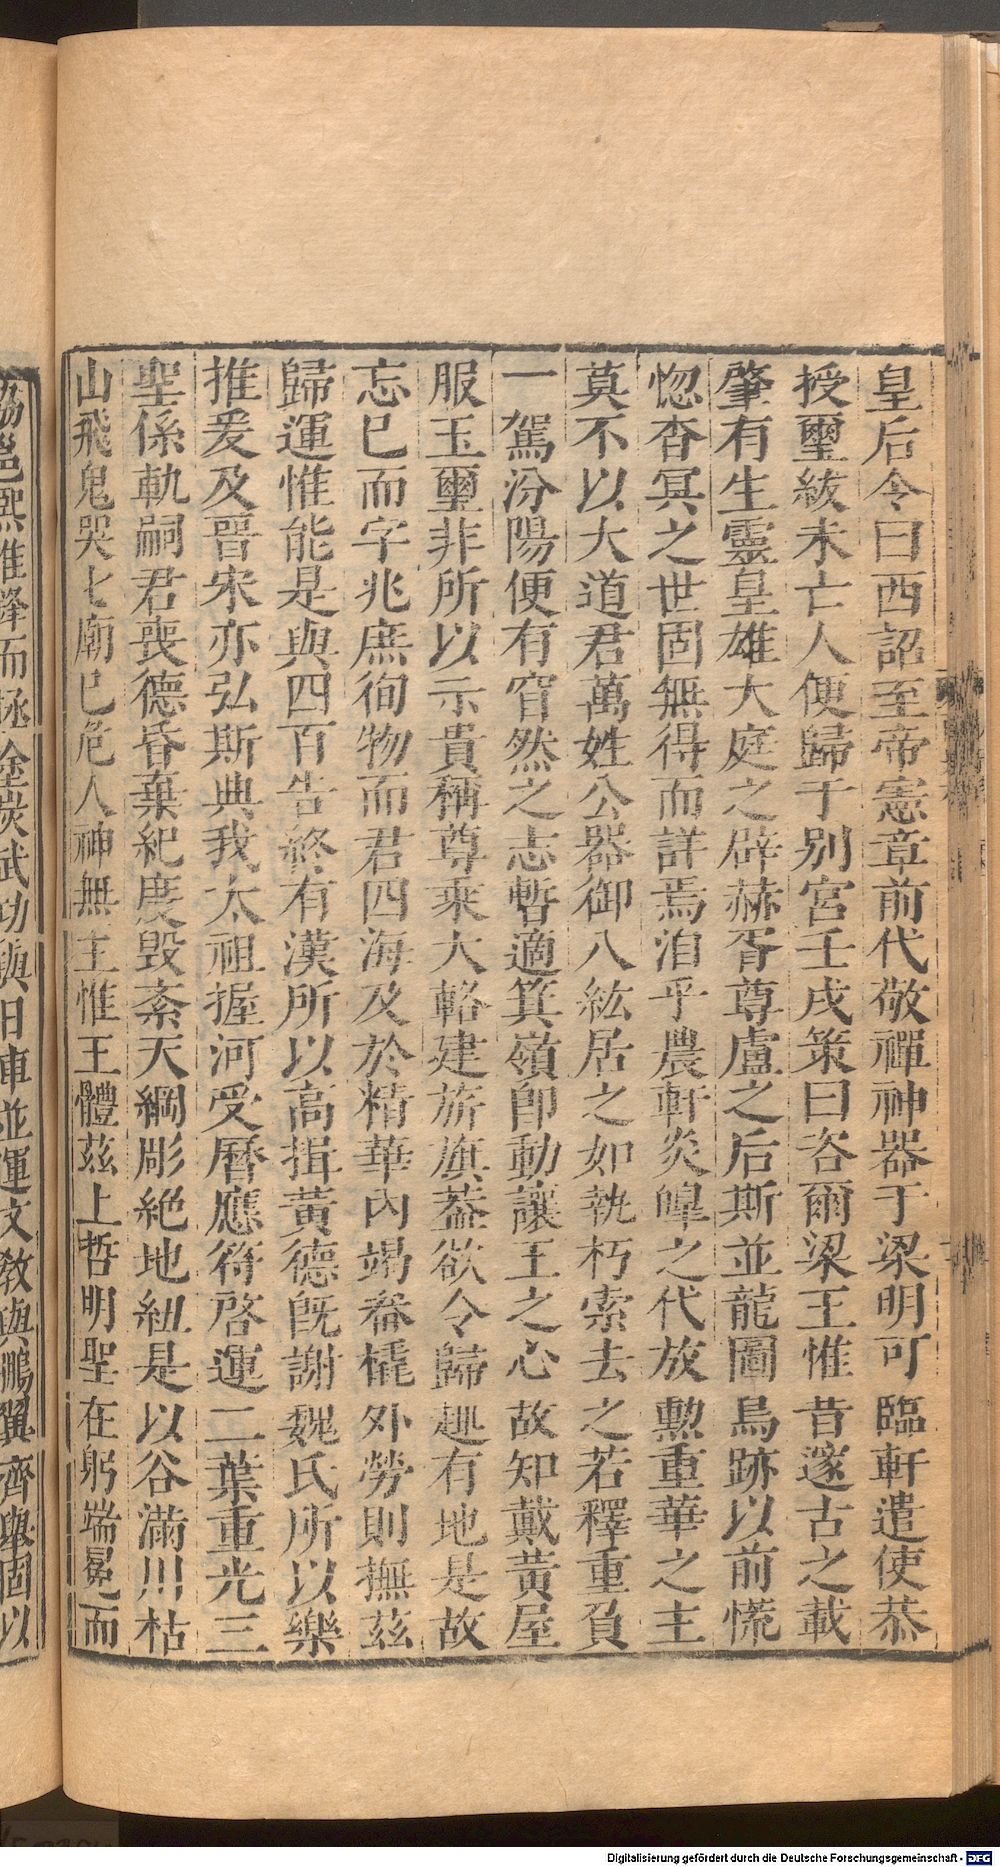 皇后令曰西詔至帝憲章前代敬禪神器于梁明可臨軒遣使恭
授璽紱未亡人便歸于别宮壬戌策曰咨爾梁王惟昔邃古之載
肇有生靈皇雄大庭之辟赫胥尊盧之后斯並龍圖鳥跡以前慌
惚杳冥之世固無得而詳焉洎乎農軒炎皡之代放勲重華之主
莫不以大道君萬姓公器御八紘居之如執朽索去之若釋重負
一駕汾陽便有窅然之志暫適箕嶺即動讓王之心故知戴黄屋
服玉璽非所以示貴稱尊乘大輅建旂旗蓋欲令歸趣有地是故
忘已而字兆庶徇物而君四海及於精華内竭畚橇外勞則撫茲
歸運惟能是與四百告終有漢所以高揖黄德既謝魏氏所以樂
推爰及晉宋亦弘斯典我太祖握河受曆應符啓運二葉重光三
聖係軌嗣君喪德昏棄紀度毁紊天綱彫絶地紐是以谷滿川枯
山飛鬼哭七廟已危人神無主惟王體茲上哲明聖在躬端冕而
協邕熙推鋒而拯塗炭武功與日車並運文敎與鵬翼齊舉固以
Digitalisierung gefördert durch die Deutsche Forschungsgemeinschaft - DFG